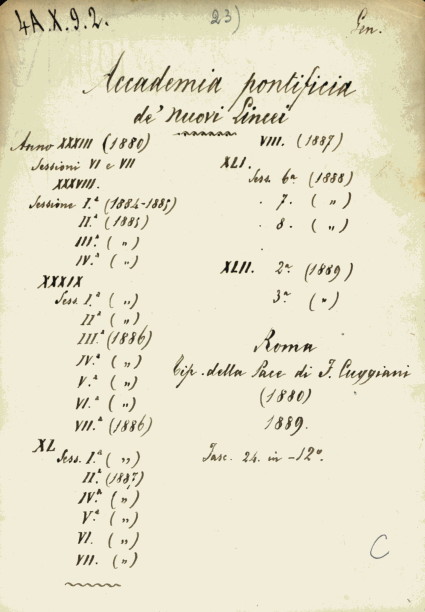 4A.X.9.2.
23)
Gen.
Accademia pontificia
de' Nuovi Lincei
Anno XXXIII (1880)
Sessioni VI e VII
XXXVIII.
Sessione I.ª (1884-1885)
II.ª (1885)
III.ª ( „ )
IV.ª ( „ )
XXXIX
Sess. I.ª ( „ )
II.ª ( „ )
III.ª (1886)
IV.ª ( „ )
V.ª ( „ )
VI.ª ( „ )
VII.ª (1886)
XL
Sess. I.ª ( „ )
II.ª (1887)
IV.ª ( „ )
V.ª ( „ )
VI. ( „ )
VII. ( „ )
VIII. (1887)
XLI.
Sess. 6ª (1888)
. 7. ( „ )
. 8. ( „ )
XLII. 2ª. (1889)
3ª ( „ )
Roma
Tip. della Pace di F. Cuggiani
(1880)
1889.
Fasc. 24. in -12º.
C